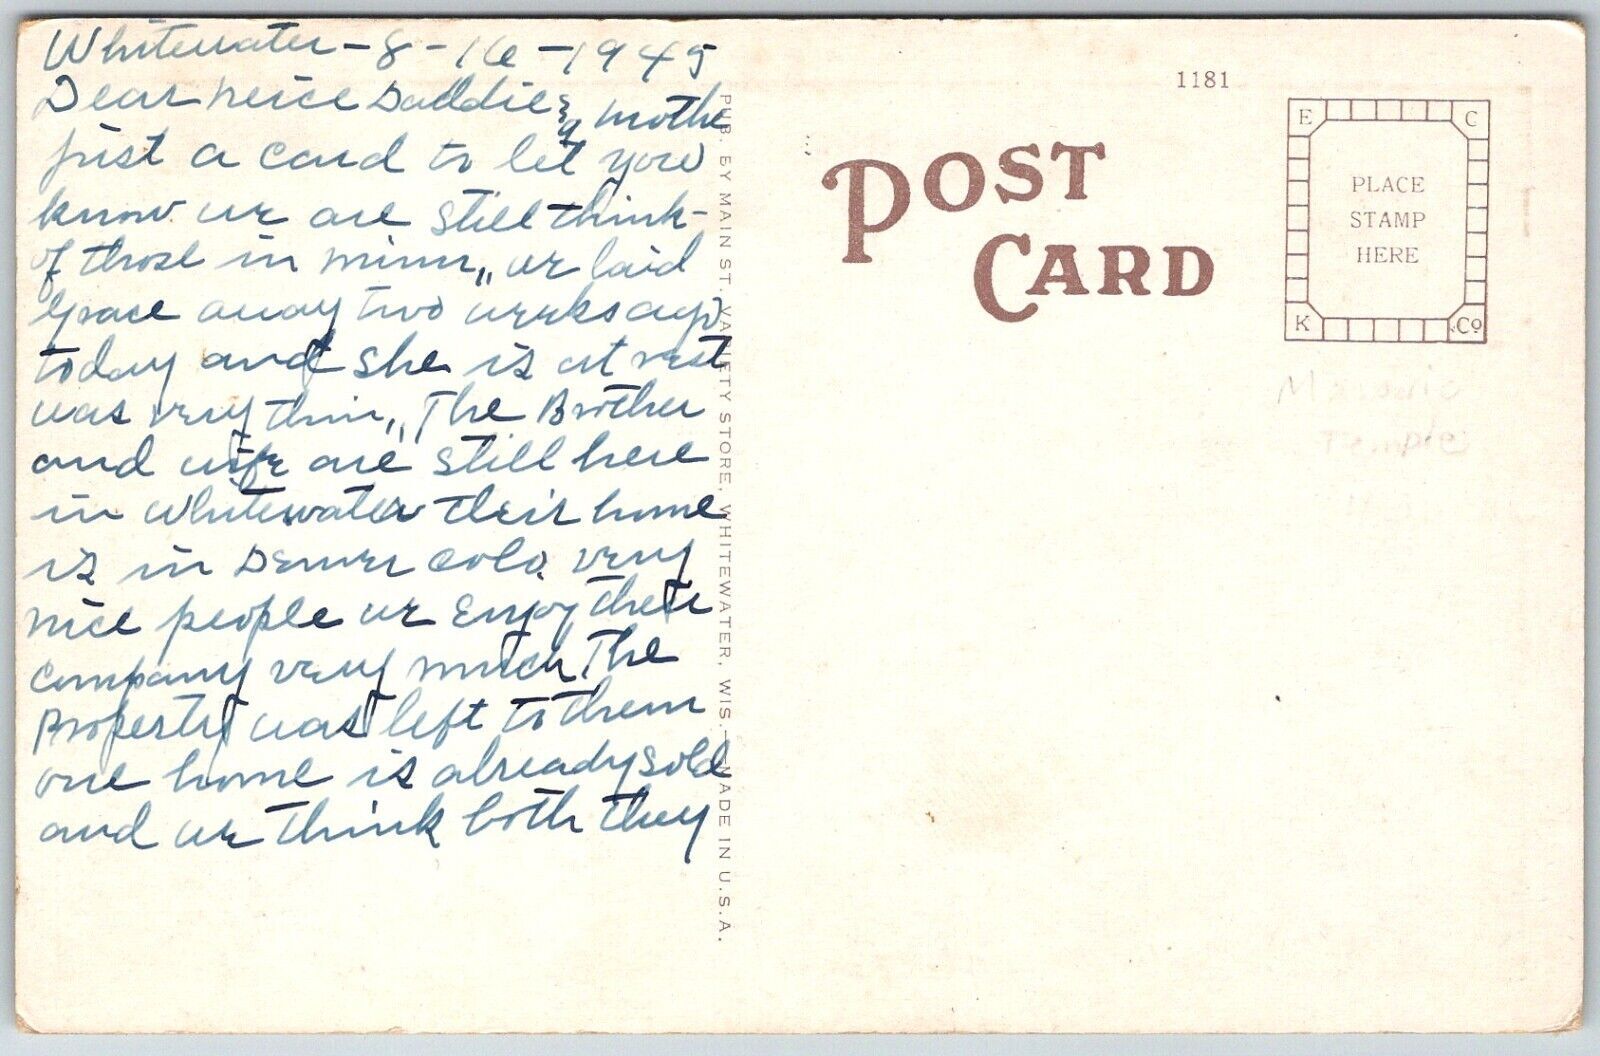 Whitewater - 8 - 16 - 1945
Dear neice Daddie & mothe
just a card to let you
know we are still think-
of those in minn,, we laid
Grace away two weeks ago
today and she is at rest
was very thin,, The Brother
and wife are still here
in Whitewater their home
is in Denver Colo. very
nice people we enjoy their
company very much, The
Property was left to them
one home is already sold
and we think both they
PUB. BY MAIN ST. VARIETY STORE, WHITEWATER, WIS. — MADE IN U.S.A.
1181
POST
CARD
E C
PLACE
STAMP
HERE
K Co
Masonic
Temple